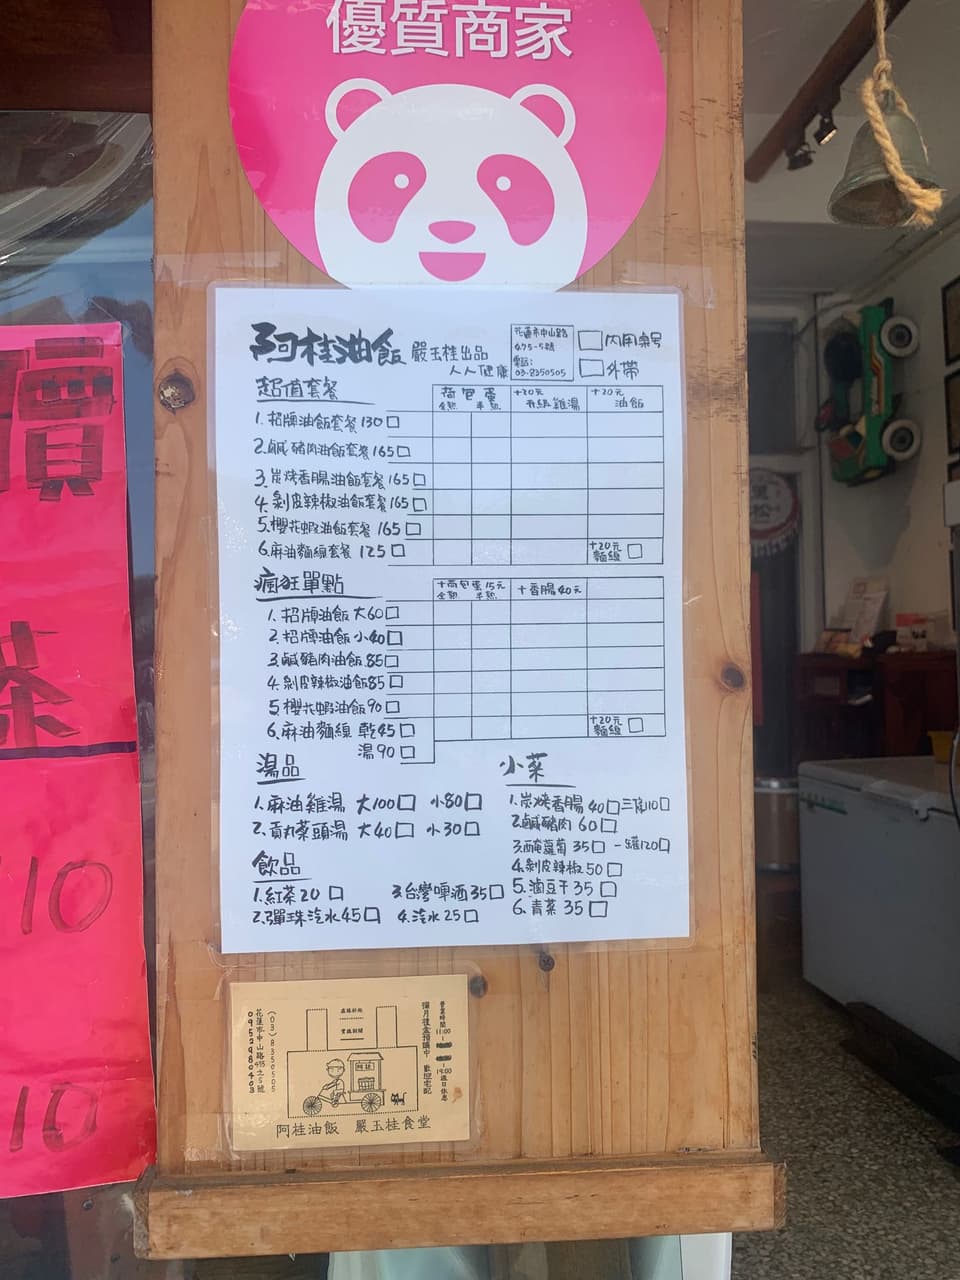 優質商家
阿桂油飯 嚴玉桂出品
人人健康
花蓮市中山路
495-5號
電話:
03-8350505
內用桌號
外帶
超值套餐
荷包蛋
全熟 半熟
+30元
升級雞湯
+20元
油飯
1. 招牌油飯套餐 130
2. 鹹豬肉油飯套餐 165
3. 炭烤香腸油飯套餐 165
4. 剝皮辣椒油飯套餐 165
5. 櫻花蝦油飯套餐 165
6. 麻油麵線套餐 125
+20元
麵線
瘋狂單點
+荷包蛋15元
全熟 半熟
+香腸40元
1. 招牌油飯 大60
2. 招牌油飯 小40
3. 鹹豬肉油飯 85
4. 剝皮辣椒油飯 85
5. 櫻花蝦油飯 90
6. 麻油麵線 乾45
湯90
+20元
麵線
湯品
1. 麻油雞湯 大100 小80
2. 貢丸菜頭湯 大40 小30
飲品
1. 紅茶 20
2. 彈珠汽水 45
3. 台灣啤酒 35
4. 汽水 25
小菜
1. 炭烤香腸 40 三條110
2. 鹹豬肉 60
3. 醃蘿蔔 35 一罐120
4. 剝皮辣椒 50
5. 滷豆干 35
6. 青菜 35
營業時間
11:00
19:00 週日休息
彌月禮盒預購中 歡迎宅配
(03)8350505
花蓮市中山路495之5號
0952980403
阿桂油飯 嚴玉桂食堂
價
茶
10
10